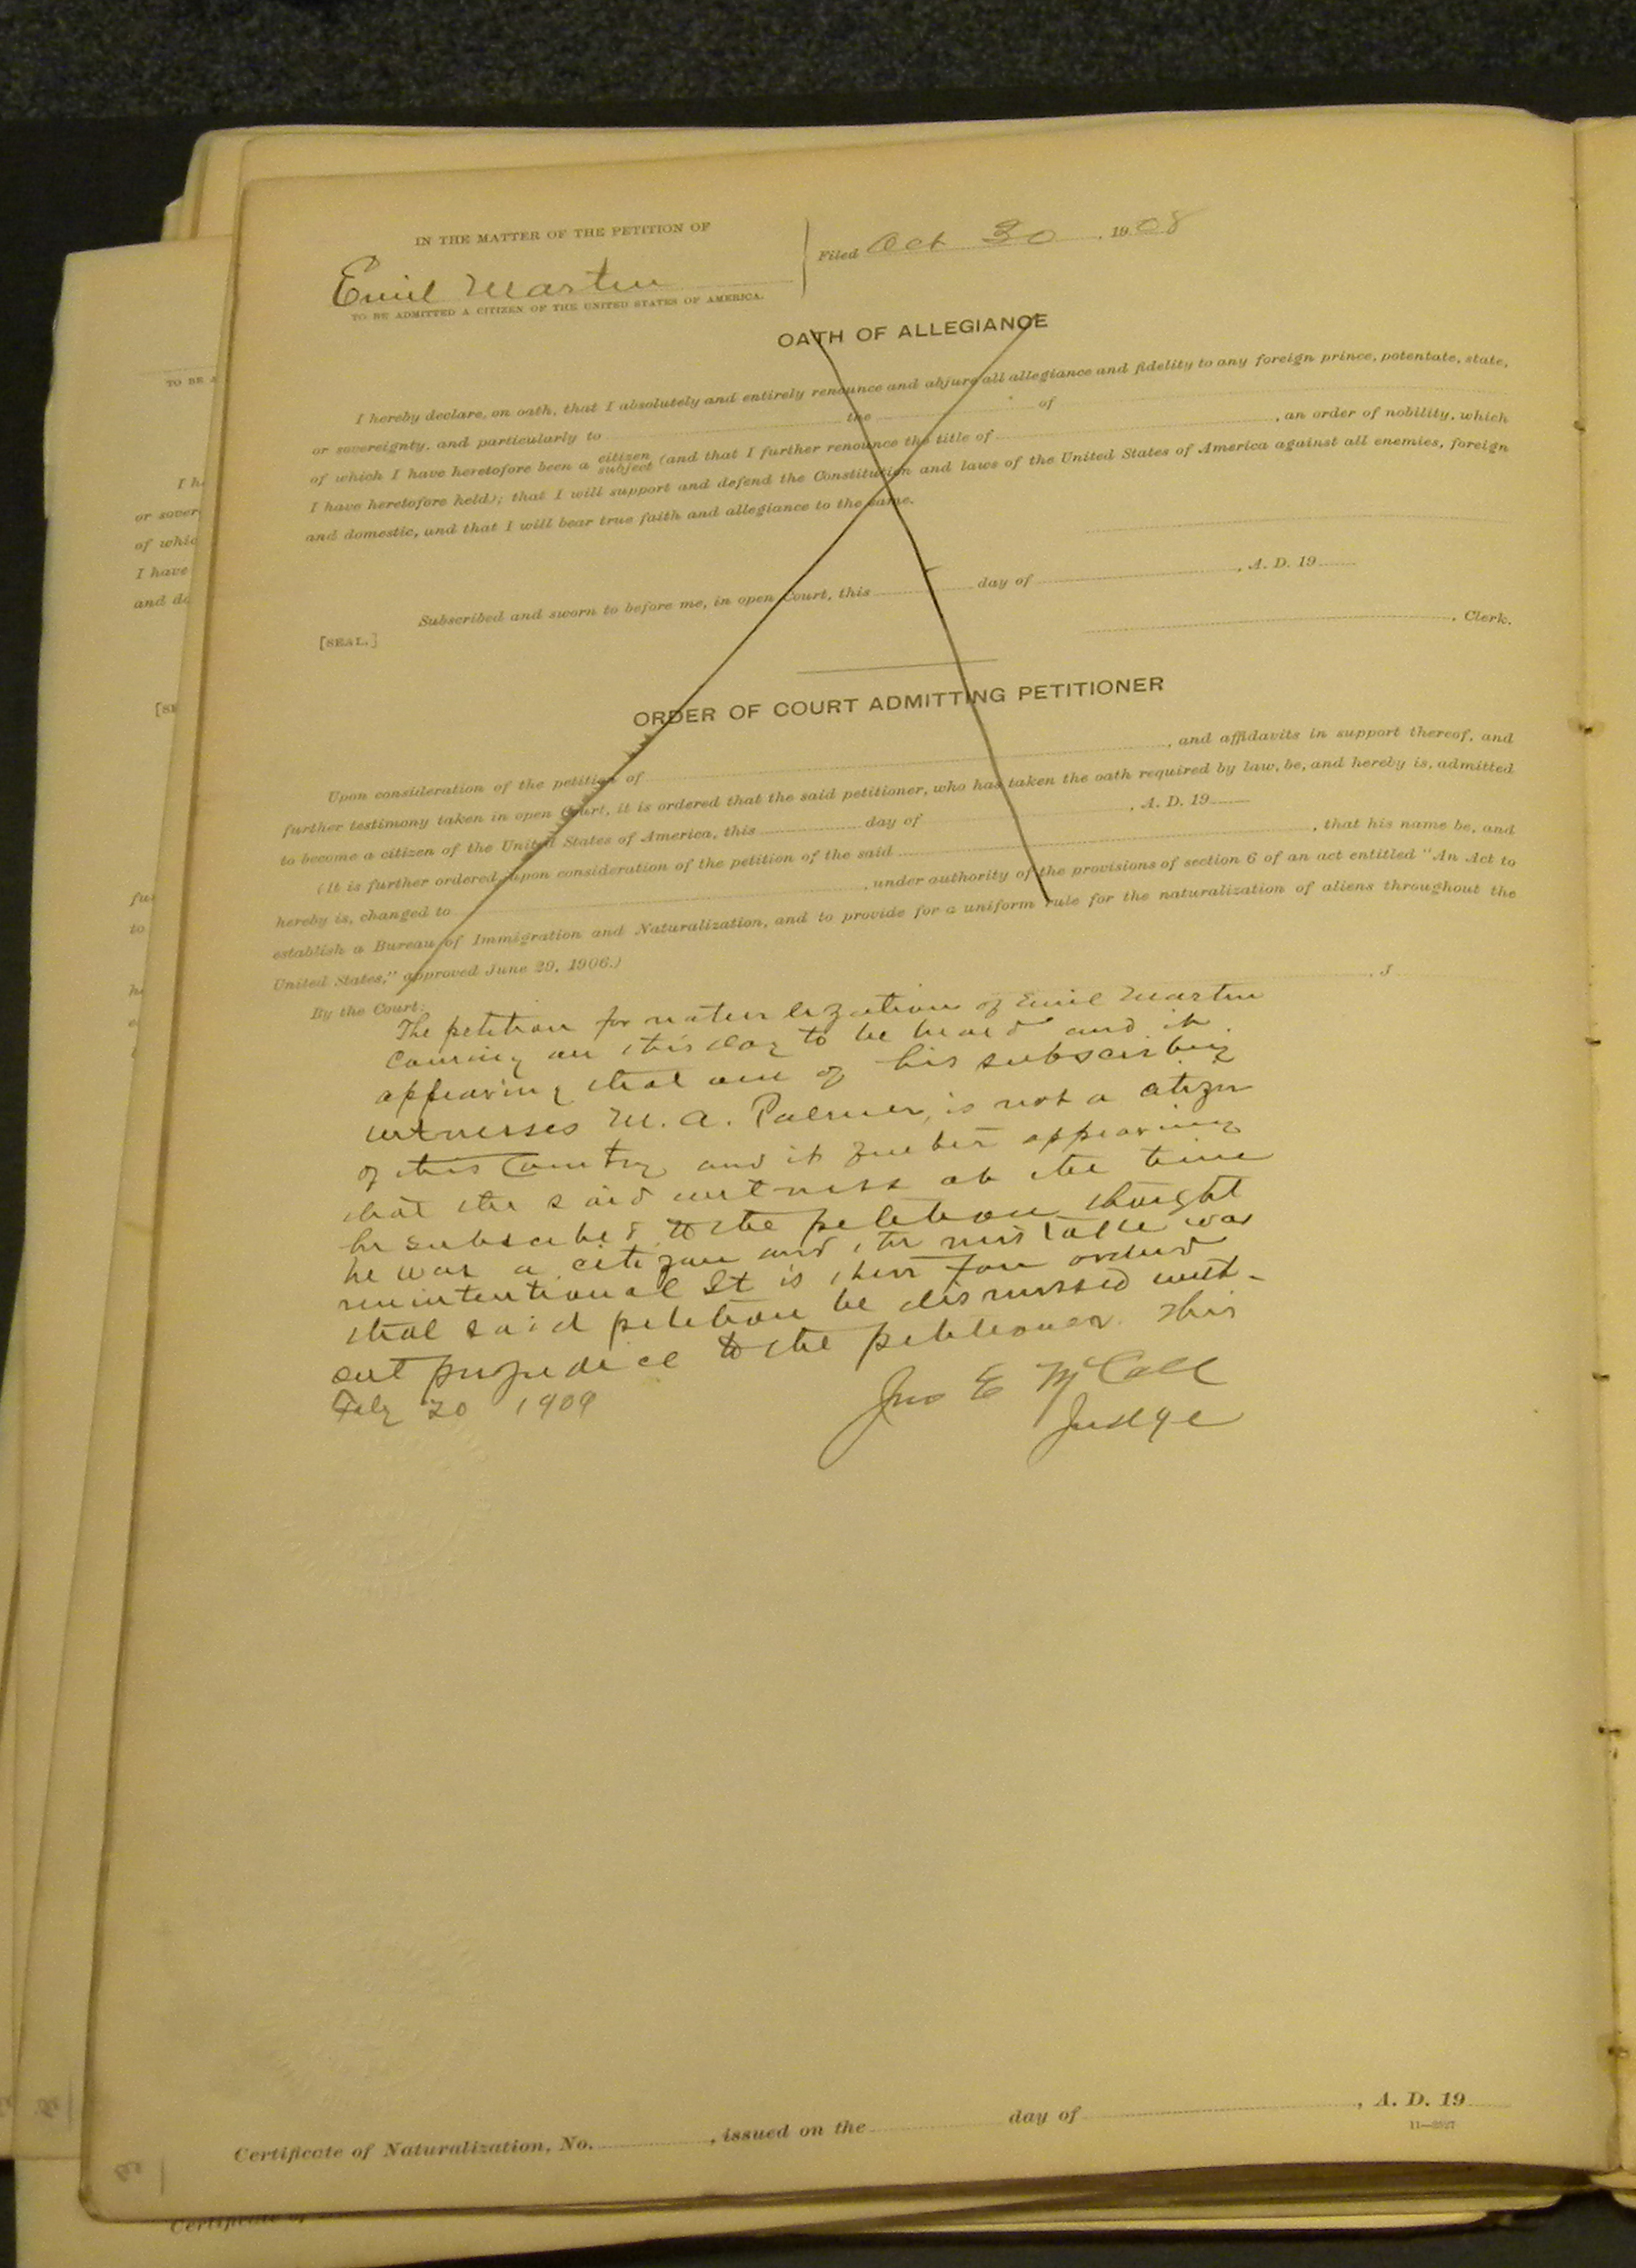 IN THE MATTER OF THE PETITION OF
Emil Martin
TO BE ADMITTED A CITIZEN OF THE UNITED STATES OF AMERICA.
Filed Oct 30, 1908
OATH OF ALLEGIANCE
I hereby declare, on oath, that I absolutely and entirely renounce and abjure all allegiance and fidelity to any foreign prince, potentate, state,
or sovereignty, and particularly to the of
of which I have heretofore been a citizen subject (and that I further renounce the title of , an order of nobility, which
I have heretofore held); that I will support and defend the Constitution and laws of the United States of America against all enemies, foreign
and domestic, and that I will bear true faith and allegiance to the same.
Subscribed and sworn to before me, in open Court, this day of , A. D. 19
[SEAL.]
, Clerk.
ORDER OF COURT ADMITTING PETITIONER
Upon consideration of the petition of , and affidavits in support thereof, and
further testimony taken in open Court, it is ordered that the said petitioner, who has taken the oath required by law, be, and hereby is, admitted
to become a citizen of the United States of America, this day of , A. D. 19
(It is further ordered, upon consideration of the petition of the said , that his name be, and
hereby is, changed to , under authority of the provisions of section 6 of an act entitled "An Act to
establish a Bureau of Immigration and Naturalization, and to provide for a uniform rule for the naturalization of aliens throughout the
United States," approved June 29, 1906.)
By the Court:
, J
The petition for naturlization of Emil Martin
Coming on this day to be heard and it
appearing that one of his subscribing
witnesses M. A. Palmer, is not a citizen
of this Country and it further appearing
that the said witness at the time
he subscribed to the petition thought
he was a citizen and the mistake was
unintentional It is therefore ordered
that said petition be dismissed with-
out prejudice to the petitioner. This
July 20 1909
Jno E McCall
Judge
Certificate of Naturalization, No. , issued on the day of , A. D. 19
11—2527
TO BE A
I h
or sover
of whic
I have
and do
[SE
fu
to
h
Certificate of